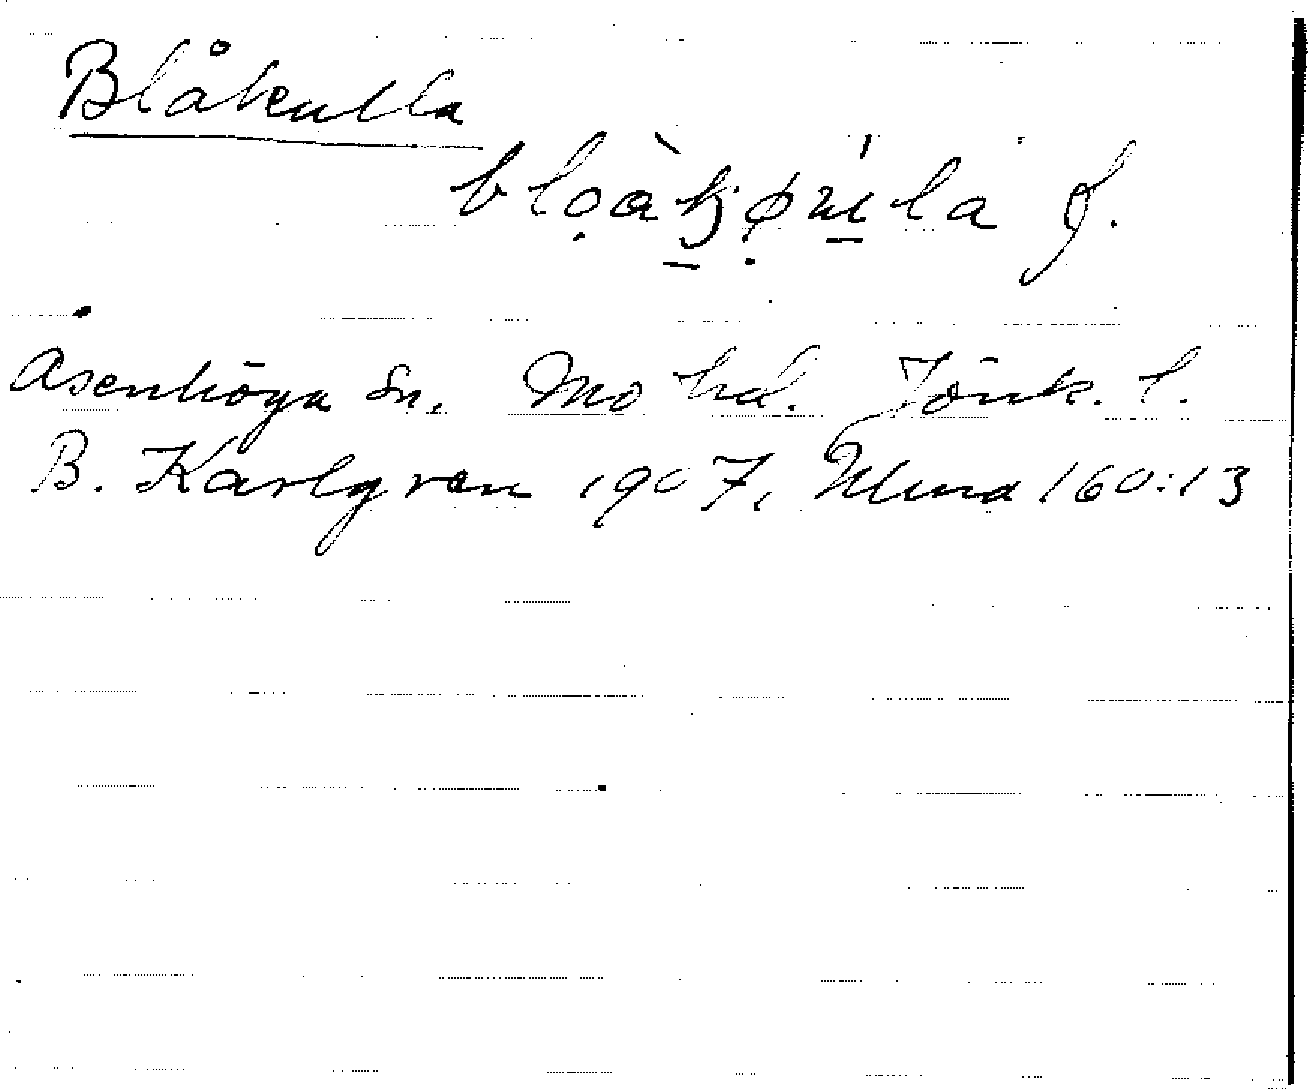 Blåkulla
f.
Åsenhöga sn, Mo hd. Jönk. l.
B. Karlgren 1907, Ulma 160:13